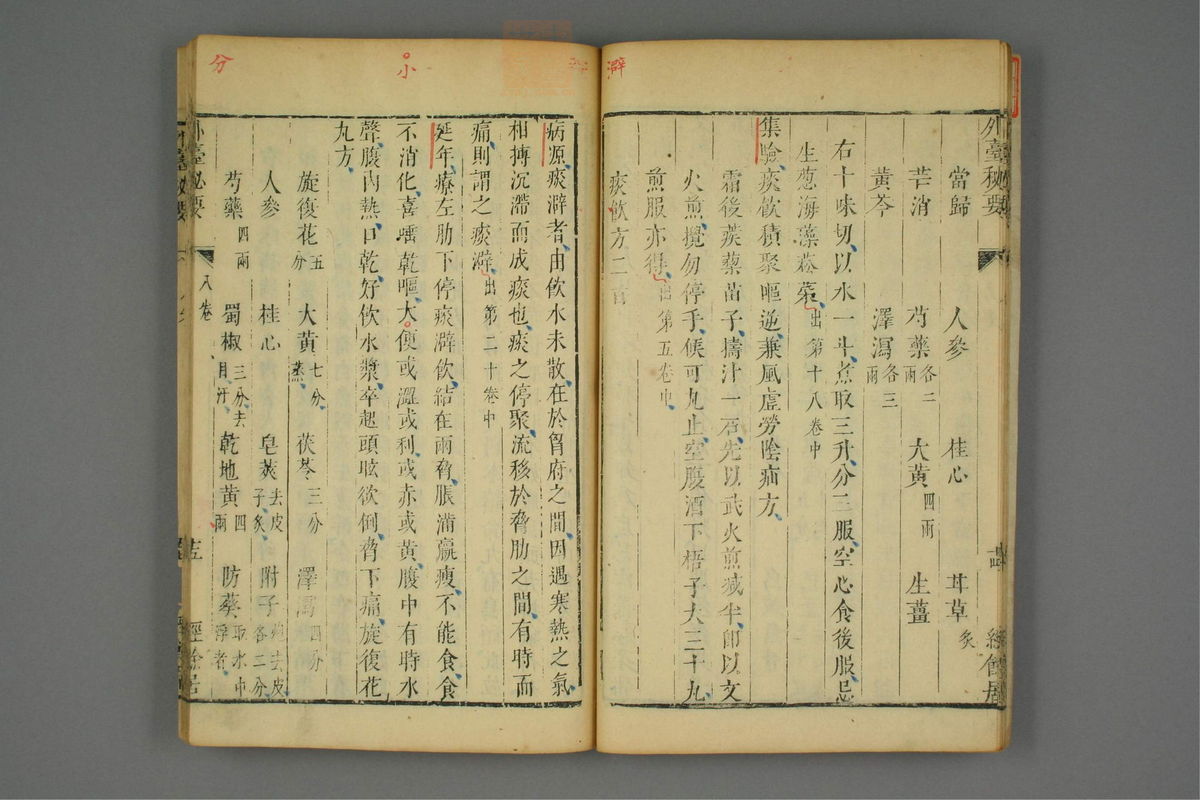 外臺秘要
當歸 人參 桂心 甘草炙
芒消 芍藥各二兩 大黃四兩 生薑
黃芩 澤瀉各三兩
右十味切以水一斗煮取三升分三服空心食後服忌
生葱海藻菘菜出第十八卷中
集驗痰飲積聚嘔逆兼風虛勞陰疝方
霜後蒺藜苗子擣汁一石先以武火煎減半卽以文
火煎攪勿停手候可丸止空腹酒下梧子大三十丸
煎服亦得出第五卷中
痰飲方二首
澼
病源痰澼者由飲水未散在於胷府之間因遇寒熱之氣
相搏沉滯而成痰也痰之停聚流移於脅肋之間有時而
痛則謂之痰澼出第二十卷中
延年療左肋下停痰澼飲結在兩脅脹滿羸瘦不能食食
不消化喜噫乾嘔大便或澀或利或赤或黃腹中有時水
聲腹內熱口乾好飲水漿卒起頭眩欲倒脅下痛旋復花
丸方
旋復花五分 大黃七分蒸 茯苓三分 澤瀉四分
人參 桂心 皂莢去皮子炙 附子炮去皮各二分
芍藥四兩 蜀椒三分去目汗 乾地黃四兩 防葵取水中浮者
外臺秘要 八卷 經餘居
小
分